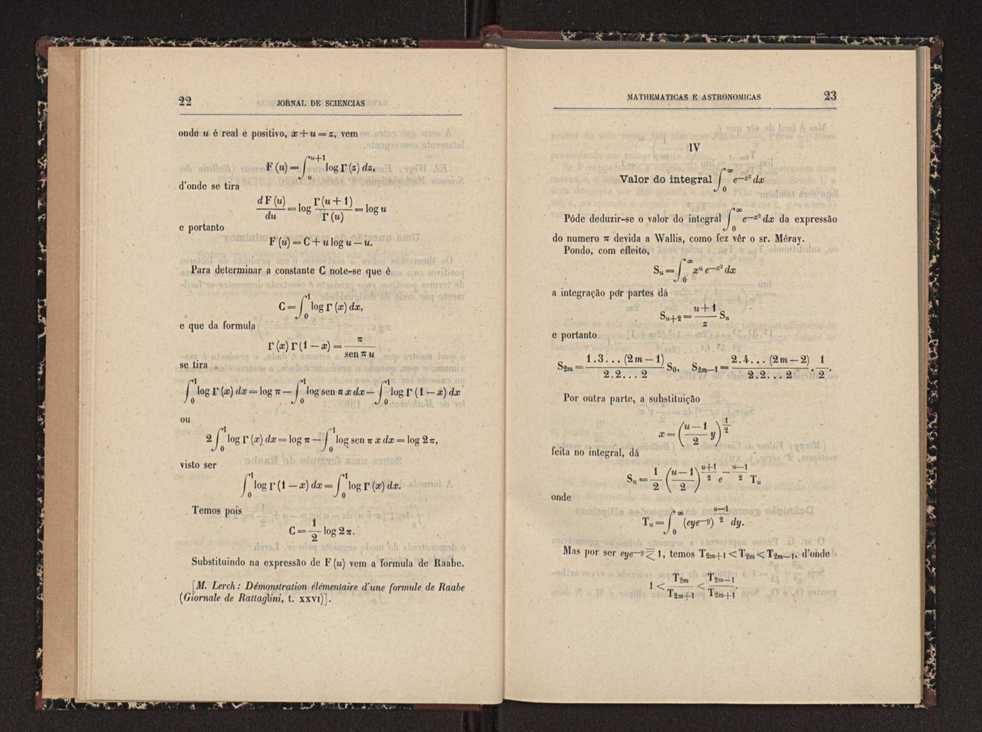 22
JORNAL DE SCIENCIAS
onde u é real e positivo, x + u = z, vem
F (u) = ∫₀ᵘ⁺¹ log Γ (z) dz,
d'onde se tira
d F (u) / du = log Γ (u + 1) / Γ (u) = log u
e portanto
F (u) = C + u log u — u.
Para determinar a constante C note-se que é
C = ∫₀¹ log Γ (x) dx,
e que da formula
Γ (x) Γ (1 — x) = π / sen π u
se tira
∫₀¹ log Γ (x) dx = log π — ∫₀¹ log sen π x dx — ∫₀¹ log Γ (1 — x) dx
ou
2 ∫₀¹ log Γ (x) dx = log π — ∫₀¹ log sen π x dx = log 2 π,
visto ser
∫₀¹ log Γ (1 — x) dx = ∫₀¹ log Γ (x) dx.
Temos pois
C = 1/2 log 2 π.
Substituindo na expressão de F (u) vem a formula de Raabe.
[M. Lerch: Démonstration élémentaire d'une formule de Raabe
(Giornale de Rattaglini, t. XXVI)].
MATHEMATICAS E ASTRONOMICAS
23
IV
Valor do integral ∫₀^∞ e^(—x²) dx
Póde deduzir-se o valor do integral ∫₀^∞ e^(—x²) dx da expressão
do numero π devida a Wallis, como fez vêr o sr. Méray.
Pondo, com effeito,
Sᵤ = ∫₀^∞ xᵘ e^(—x²) dx
a integração por partes dá
Sᵤ₊₂ = (u + 1) / 2 Sᵤ
e portanto
S₂ₘ = 1 . 3 . . . (2m — 1) / 2 . 2 . . . 2 S₀, S₂ₘ₋₁ = 2 . 4 . . . (2m — 2) / 2 . 2 . . . 2 . 1/2 .
Por outra parte, a substituição
x = ((u — 1) / 2 y)^(1/2)
feita no integral, dá
Sᵤ = 1/2 ((u — 1) / 2)^((u+1)/2) e^(—(u—1)/2) Tᵤ
onde
Tᵤ = ∫₀^∞ (eye^(—y))^((u—1)/2) dy.
Mas por ser eye^(—y) ≦ 1, temos T₂ₘ₊₁ < T₂ₘ < T₂ₘ₋₁, d'onde
1 < T₂ₘ / T₂ₘ₊₁ < T₂ₘ₋₁ / T₂ₘ₊₁ .